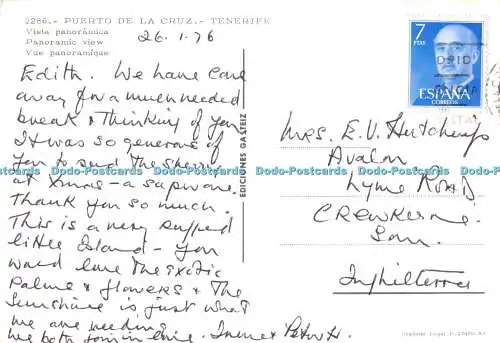 2286.- PUERTO DE LA CRUZ.- TENERIFE
Vista panorámica
Panoramic view
Vue panoramique
26.1.76
Edith. We have come
away for a much needed
break & thinking of you
It was so generous of
you to send the sherry
at Xmas - a super one.
Thank you so much.
This is a very
little Island - you
would love the exotic
palms & flowers & the
Sunshine is just what
we are needing.
We both join in love. Irene & Peter H.
EDICIONES GASTEIZ
7
PTAS
ESPAÑA
CORREOS
Mrs. E. V. Hutchings
Avalon
Lyme Road
CREWKERNE.
Som.
Inghilterra
Dodo-Postcards Dodo-Postcards Dodo-Postcards Dodo-Postcards